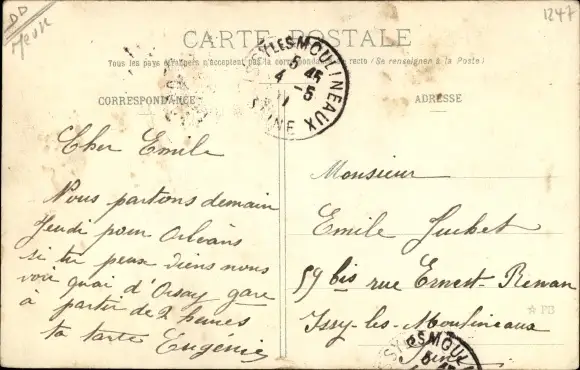 DD
Meuse
1247
CARTE POSTALE
Tous les pays étrangers n'acceptent pas la correspondance au recto (Se renseigner à la Poste)
ISSY LES MOULINEAUX
5 45
4 -5
11
SEINE
CORRESPONDANCE
ADRESSE
Cher Emile
Nous partons demain
Jeudi pour Orléans
si tu peux viens nous
voir quai d'Orsay gare
à partir de 2 heures
ta tante Eugenie
Monsieur
Emile Juchet
59 bis rue Ernest-Renan
Issy-les-Moulineaux
Seine
PD
ISSY LES MOULINEAUX
5 45